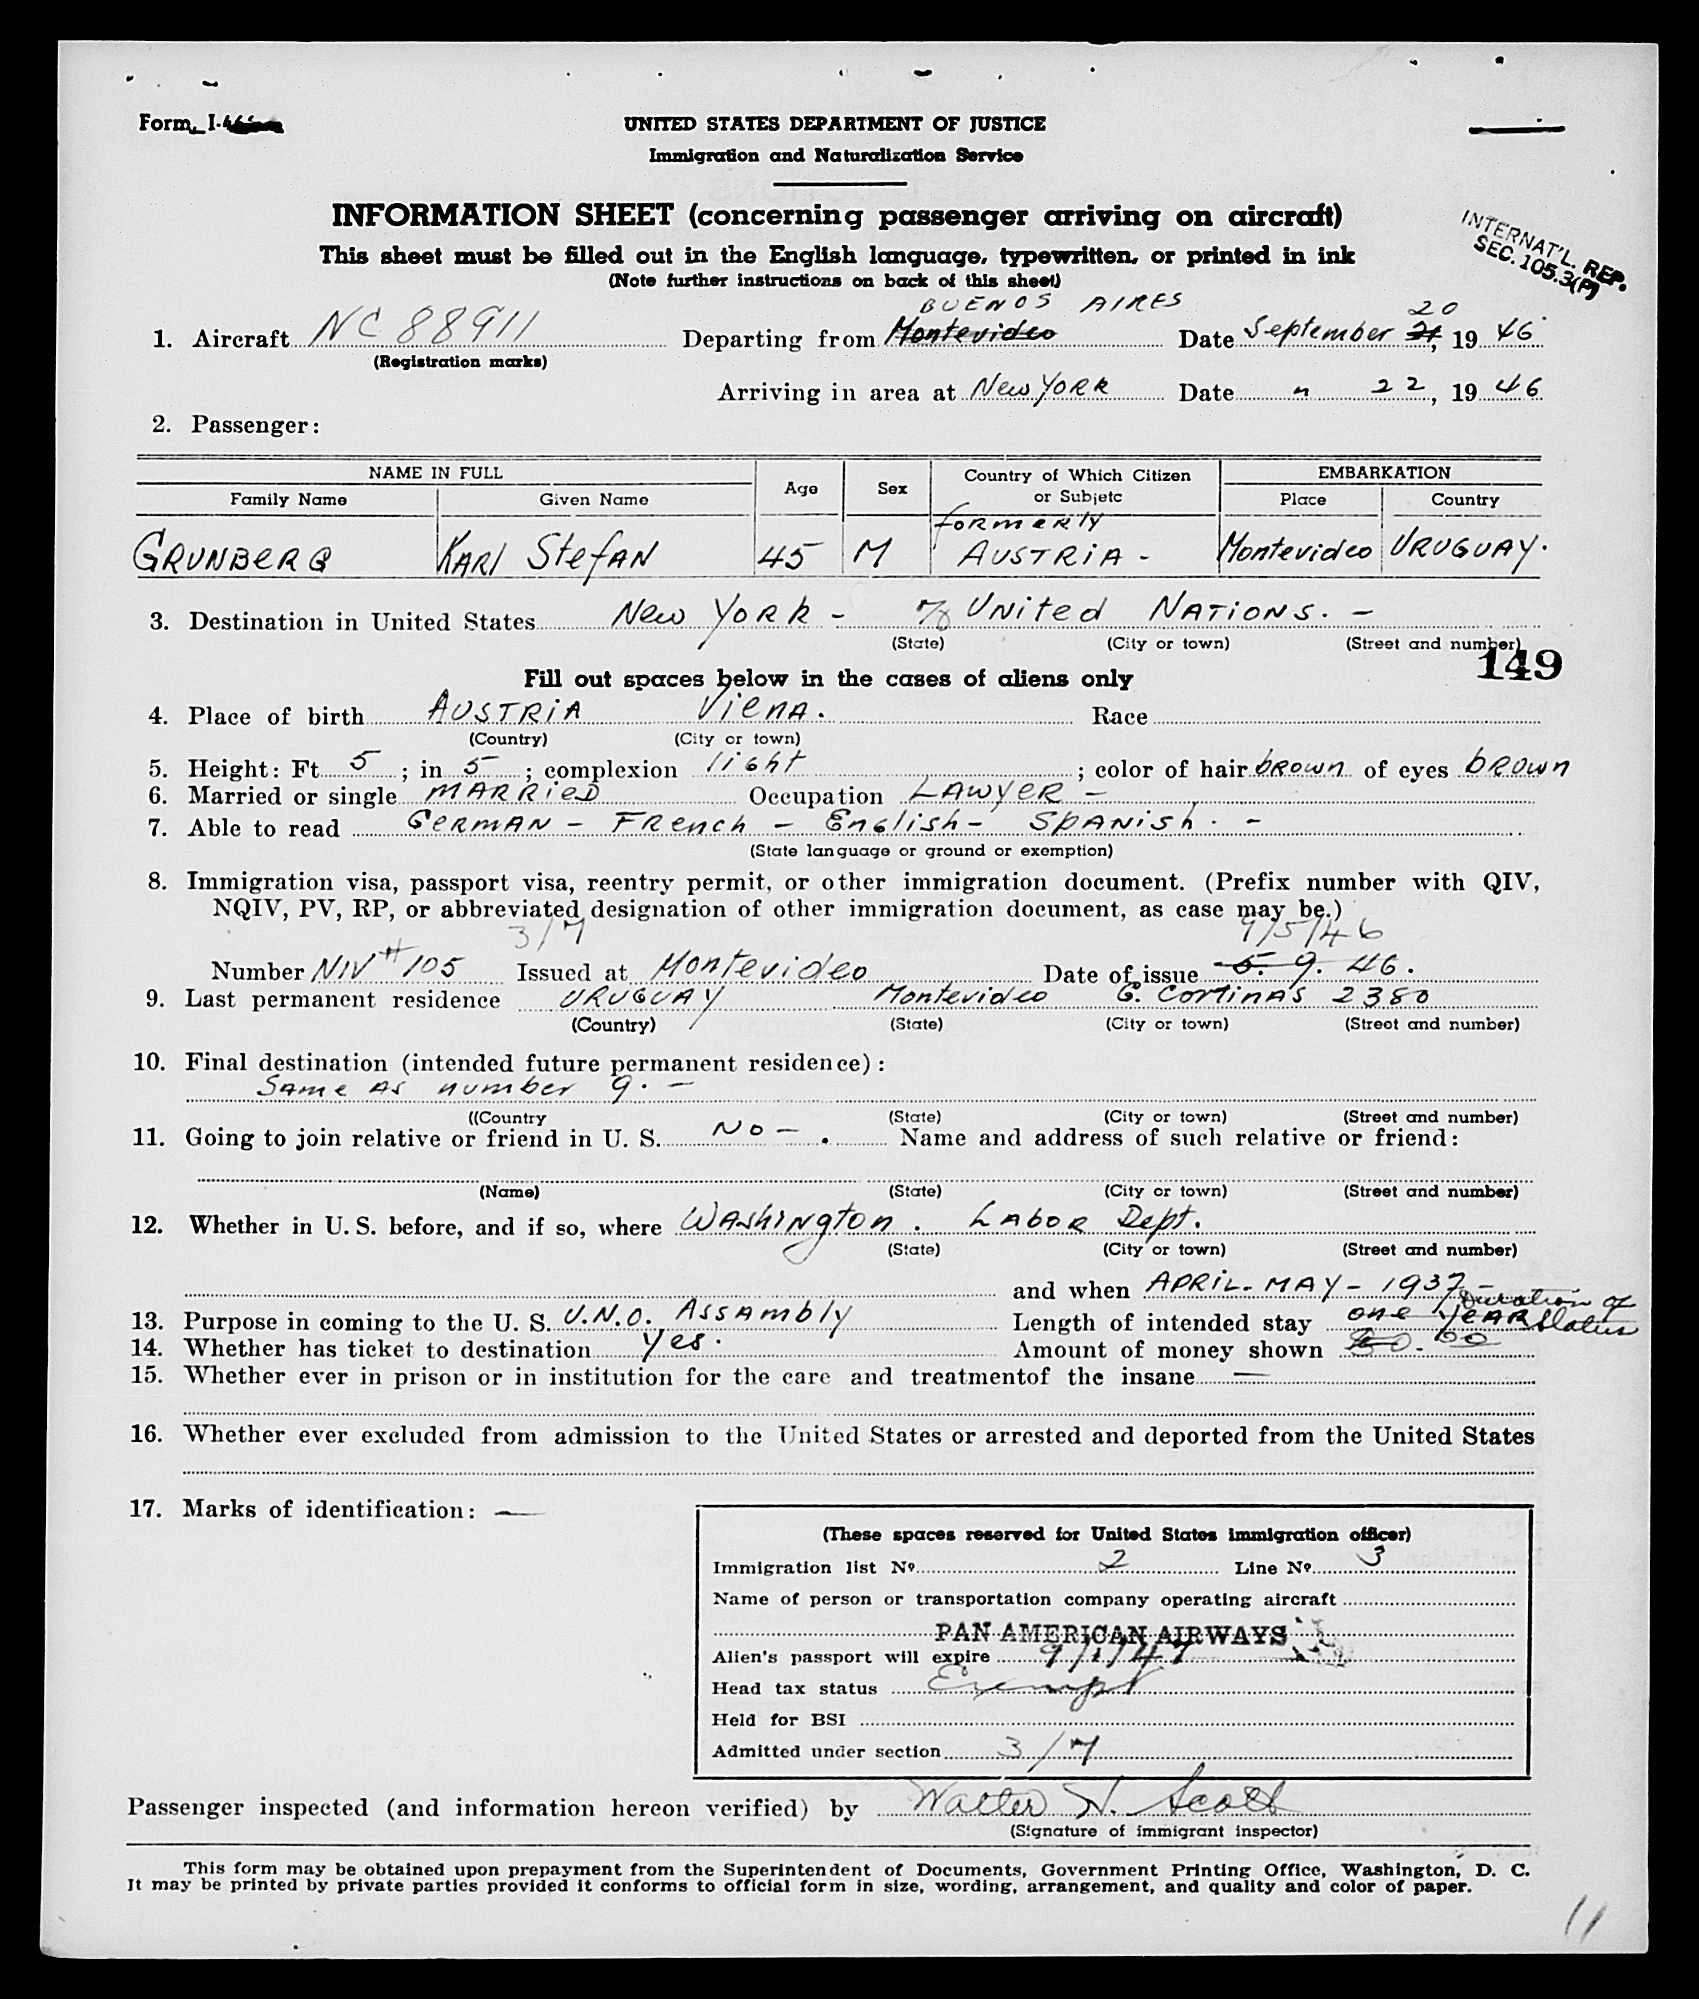 Form I-466
UNITED STATES DEPARTMENT OF JUSTICE
Immigration and Naturalization Service
INFORMATION SHEET (concerning passenger arriving on aircraft)
This sheet must be filled out in the English language, typewritten, or printed in ink
(Note further instructions on back of this sheet)
INTERNAT'L. REP.
SEC. 105.3(P)
BUENOS AIRES 20
1. Aircraft NC 88911 Departing from Montevideo Date September 21, 19 46
(Registration marks)
Arriving in area at New York Date " 22, 19 46
2. Passenger:
NAME IN FULL Age Sex Country of Which Citizen or Subjetc EMBARKATION
Family Name Given Name Place Country
formerly
GRUNBERG KARl StefAN 45 M AUSTRiA - Montevideo URUGUAY.
3. Destination in United States New York - % UNited NATiONS. -
(State) (City or town) (Street and number)
149
Fill out spaces below in the cases of aliens only
4. Place of birth AUSTRiA VienA. Race
(Country) (City or town)
5. Height: Ft. 5 ; in 5 ; complexion light ; color of hair brown of eyes brown
6. Married or single MARRieD Occupation LAwyeR -
7. Able to read GeRmAN - FRench - English - SpANish. -
(State language or ground or exemption)
8. Immigration visa, passport visa, reentry permit, or other immigration document. (Prefix number with QIV,
NQIV, PV, RP, or abbreviated designation of other immigration document, as case may be.)
3/7 9/5/46
Number NIV # 105 Issued at Montevideo Date of issue 5. 9. 46.
9. Last permanent residence URUGUAY Montevideo G. CortinAs 2380
(Country) (State) (City or town) (Street and number)
10. Final destination (intended future permanent residence):
Same as number 9. -
((Country (State) (City or town) (Street and number)
11. Going to join relative or friend in U. S. No - . Name and address of such relative or friend:
(Name) (State) (City or town) (Street and number)
12. Whether in U. S. before, and if so, where WAshiNgton. LAboR Dept.
(State) (City or town) (Street and number)
and when APRiL - MAY - 1937 -
duration of
13. Purpose in coming to the U. S. U.N.O. AssAmbly Length of intended stay one yeAR status
14. Whether has ticket to destination yes. Amount of money shown
15. Whether ever in prison or in institution for the care and treatmentof the insane —
16. Whether ever excluded from admission to the United States or arrested and deported from the United States
17. Marks of identification: —
(These spaces reserved for United States immigration officer)
Immigration list Nº 2 Line Nº 3
Name of person or transportation company operating aircraft
PAN AMERICAN AIRWAYS
Alien's passport will expire 9/1/47
Head tax status Exempt
Held for BSI
Admitted under section 3/7
Passenger inspected (and information hereon verified) by Walter W. Scott
(Signature of immigrant inspector)
This form may be obtained upon prepayment from the Superintendent of Documents, Government Printing Office, Washington, D. C.
It may be printed by private parties provided it conforms to official form in size, wording, arrangement, and quality and color of paper.
11